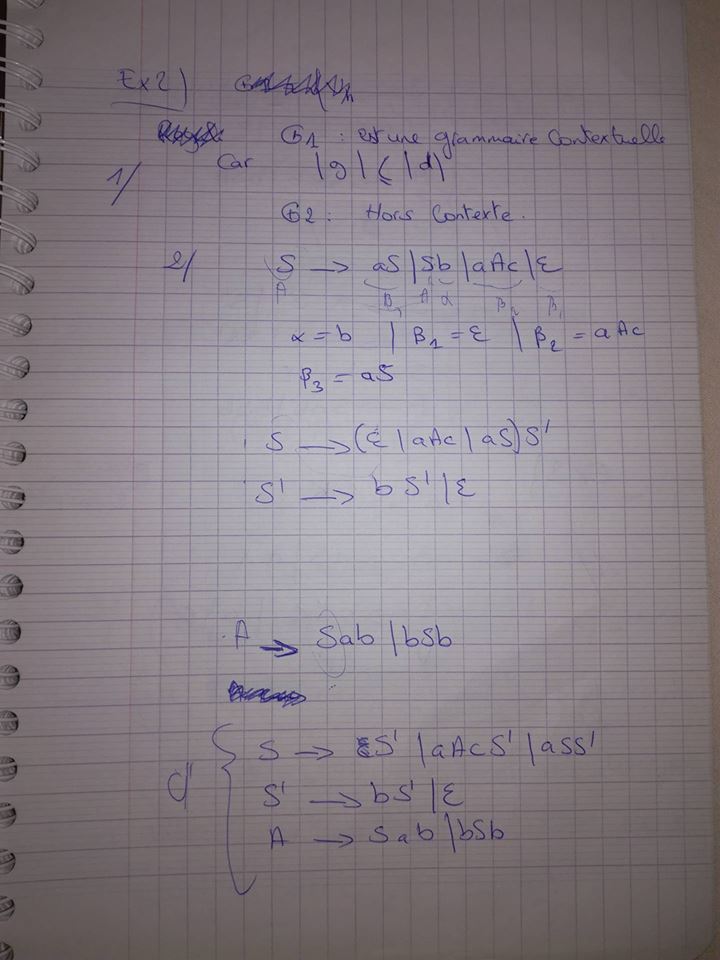 Ex2)
G1 : est une grammaire Contextuelle
1/ Car |g| ⩽ |d|
G2 : Hors Contexte.
2/ S → aS | Sb | aAc | ε
A β A α β₂ β₁
α = b | β₁ = ε | β₂ = aAc
β₃ = aS
S → (ε | aAc | aS)S'
S' → bS' | ε
A → Sab | bSb
S → εS' | aAcS' | aSS'
S' → bS' | ε
A → Sab | bSb